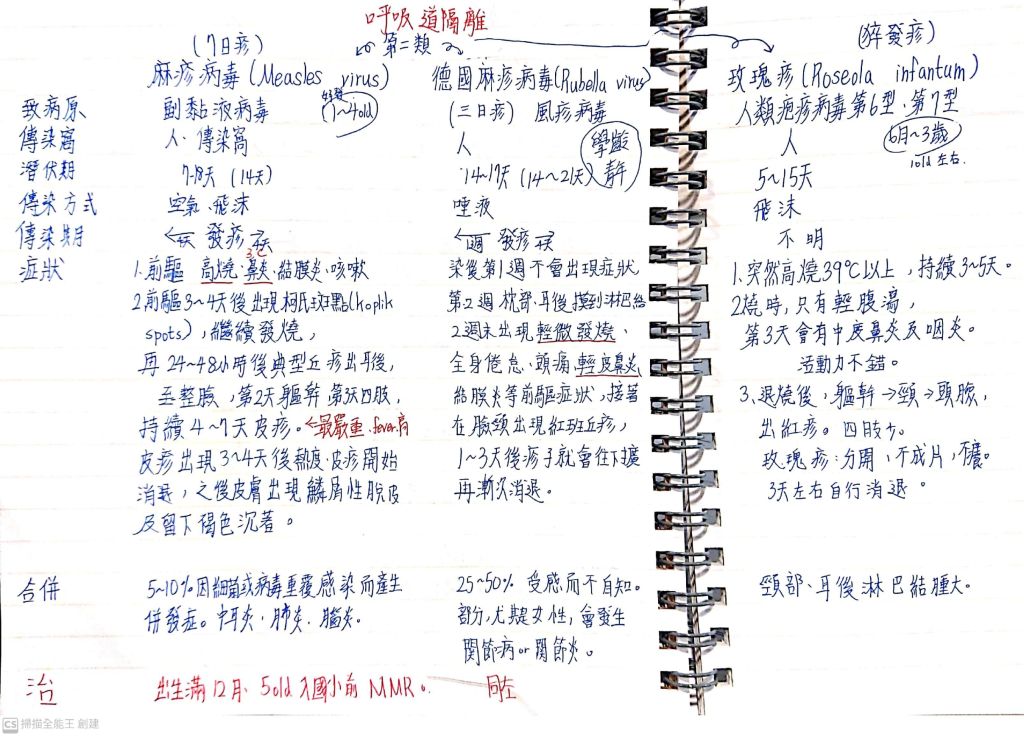 呼吸道隔離
(7日疹)
第二類
(猝發疹)
麻疹病毒(Measles virus)
德國麻疹病毒(Rubella virus)
玫瑰疹(Roseola infantum)
致病原
副黏液病毒
(1~4old)
(三日疹) 風疹病毒
人類疱疹病毒第6型、第7型
傳染窩
人、傳染窩
人
學齡
青年
人
6月~3歲
1old左右.
潛伏期
7-18天 (14天)
14~17天 (14~21天)
5~15天
傳染方式
空氣、飛沫
唾液
飛沫
傳染期
←4天 發疹→4天
←1週 發疹→
不明
症狀
1.前驅 高燒、鼻炎、結膜炎、咳嗽
3C
2.前驅3~4天後出現柯氏斑點(koplik
spots),繼續發燒,
再24~48小時後典型丘疹出耳後,
至整臉,第2天軀幹 第3天四肢,
持續4~7天皮疹。←最嚴重、fever高
皮疹出現3~4天後熱度、皮疹開始
消退,之後皮膚出現鱗屑性脫皮
及留下褐色沉著。
染後第1週不會出現症狀
第2週枕部、耳後摸到淋巴結
2週末出現輕微發燒、
全身倦怠、頭痛、輕度鼻炎
結膜炎等前驅症狀,接著
在臉頸出現紅斑丘疹,
1~3天後疹子就會往下擴
再漸次消退。
1.突然高燒39℃以上,持續3~5天。
2燒時,只有輕腹瀉,
第3天會有中度鼻炎及咽炎。
活動力不錯。
3、退燒後,軀幹→頸→頭臉,
出紅疹。四肢少。
玫瑰疹:分開、不成片,不癢。
3天左右自行消退。
合併
5~10%因細菌或病毒重覆感染而產生
併發症。中耳炎、肺炎、腦炎。
25~50% 受感而不自知。
部分,尤其女性,會發生
關節痛or關節炎。
頸部、耳後淋巴結腫大。
治
出生滿12月、5old入國小前 MMR。
同左
CS 掃描全能王 創建